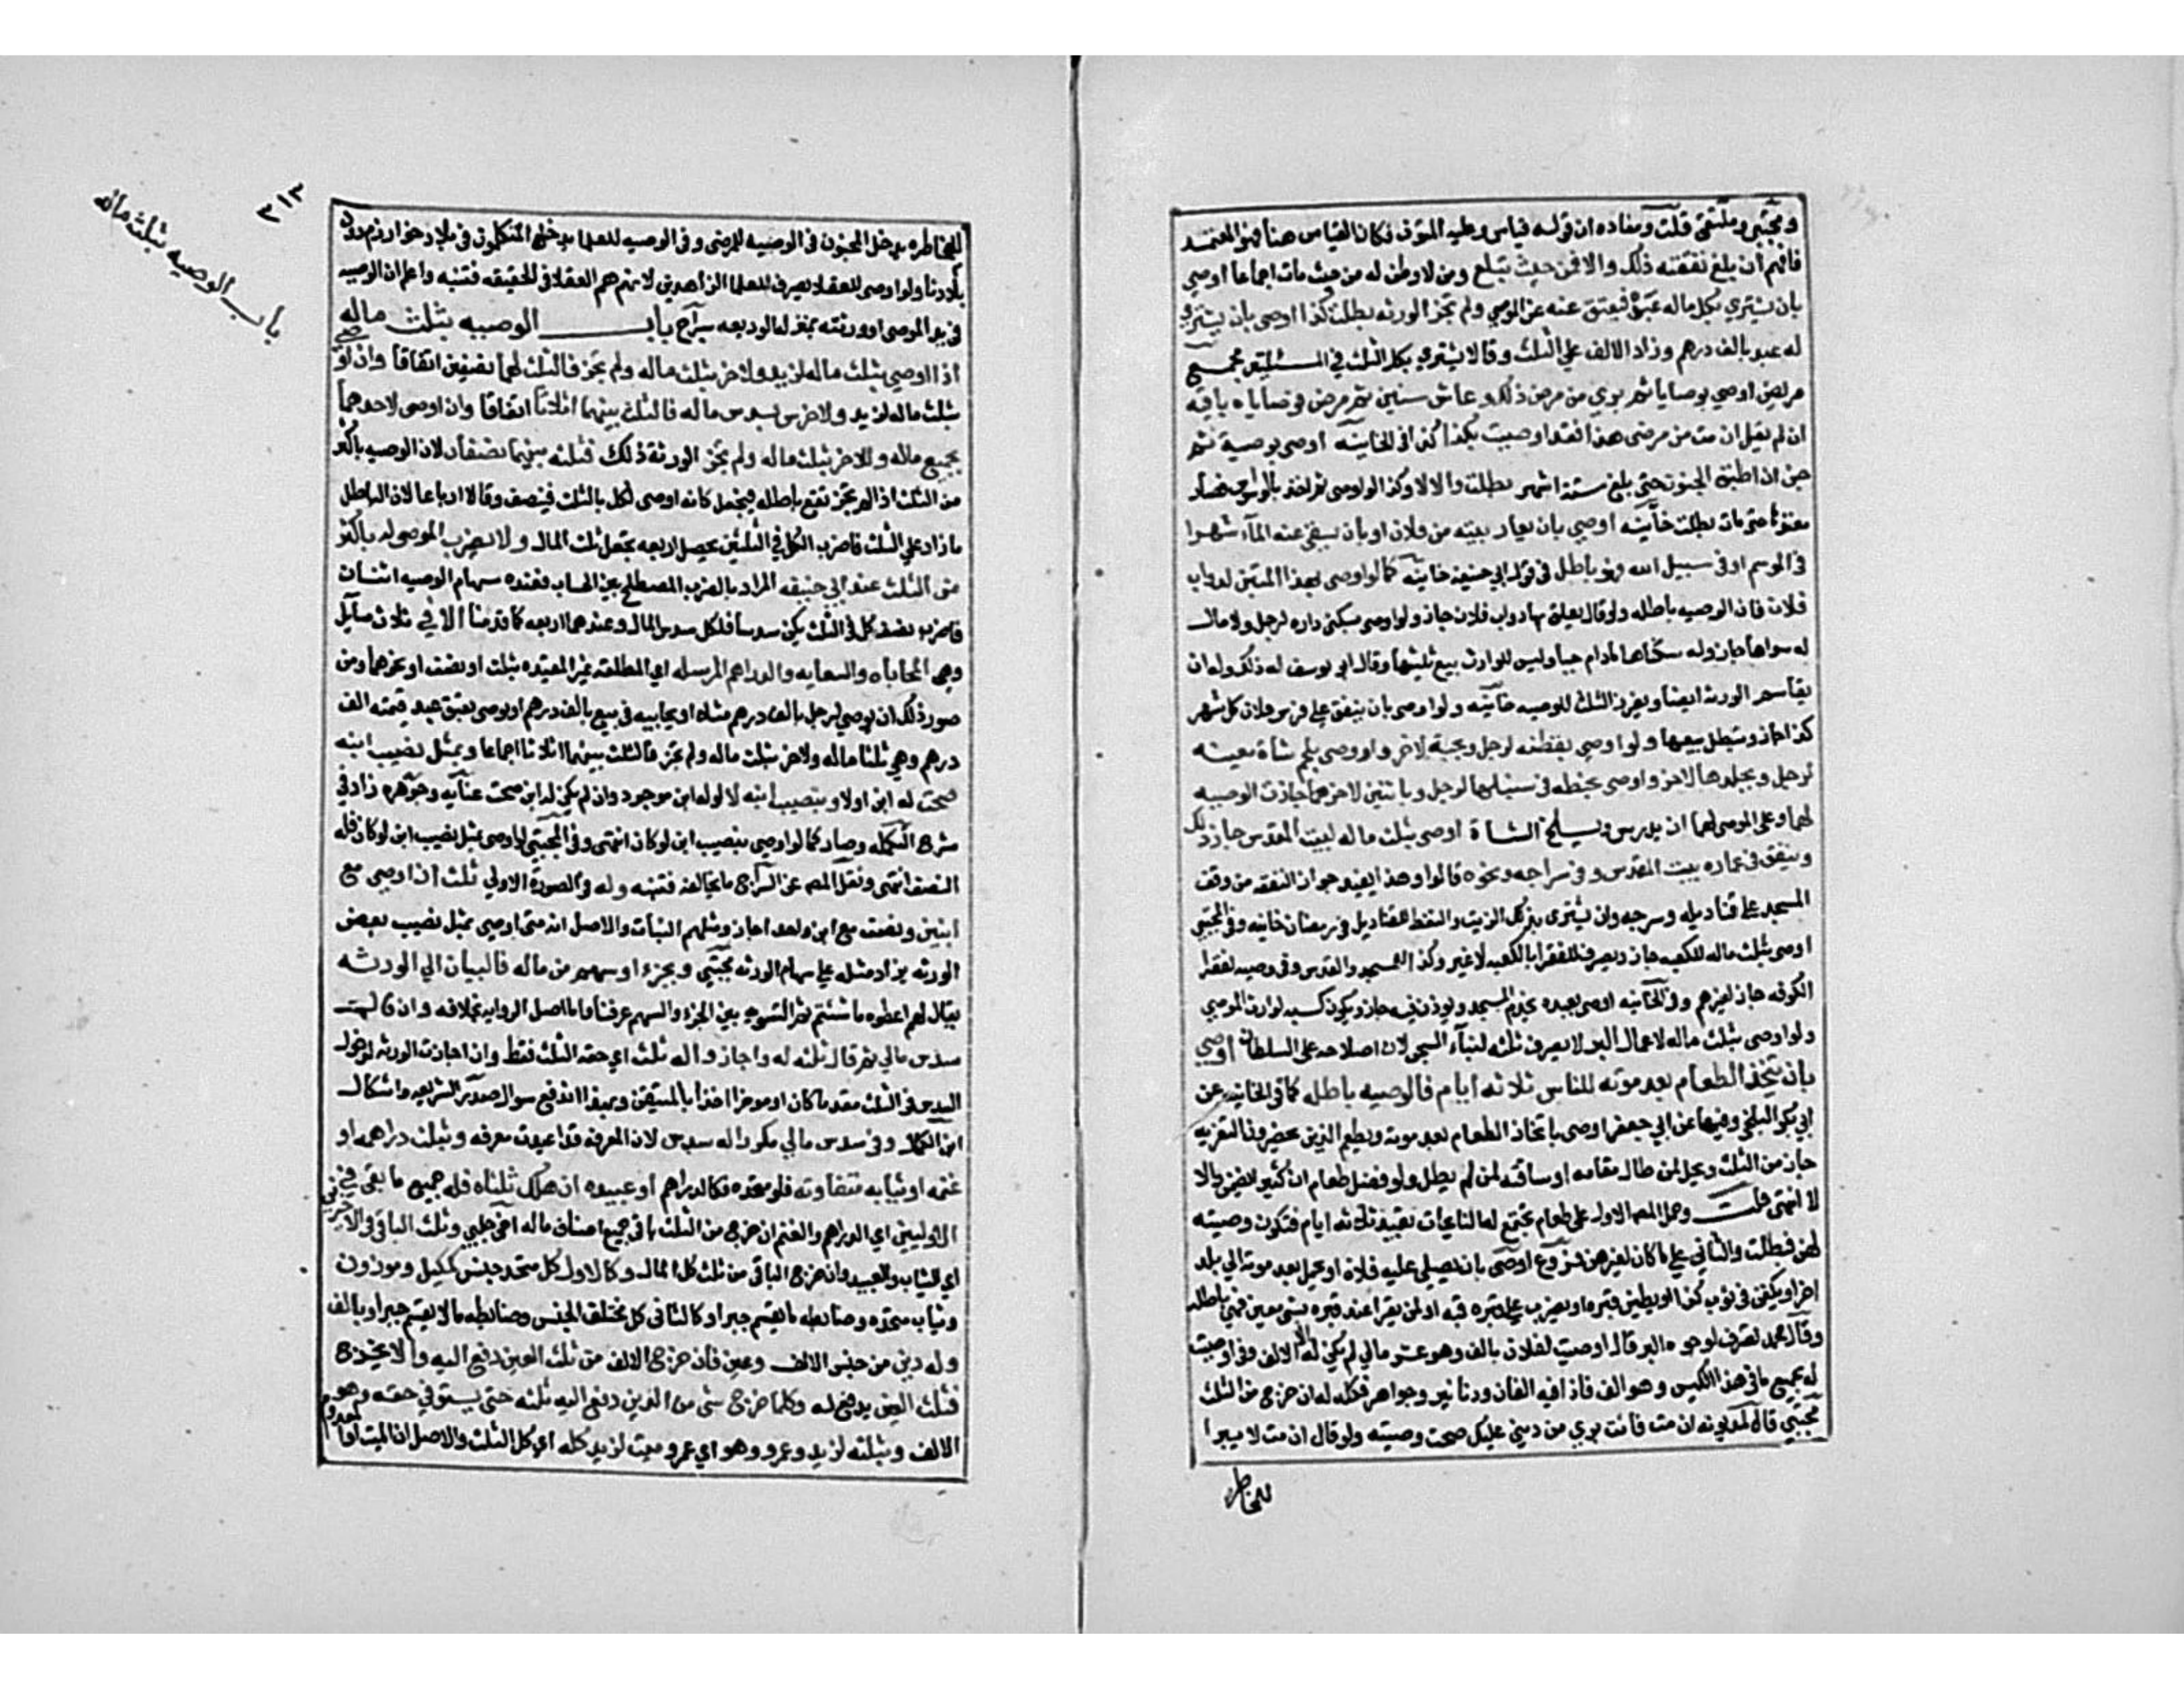 ومجتبى وملتقى قلت ومفاده ان قوله قياس وعليه المتون فكان القياس هنا هو المعتمد
فافهم ان بلغ نفقته ذلك والا فمن حيث تبلغ ومن لا وطن له من حيث مات اجماعا اوصي
بان يشتري بكل ماله عبد فيعتق عنه عن الموصي ولم تجز الورثه بطلت كذا اوصى بان يشتري
له عبد بالف درهم وزاد الالف علي الثلث وقالا يشتري بكل الثلث في المسئلتين مجمع
مريض اوصي بوصايا ثم بري من مرض ذلك وعاش سنين ثم مرض فوصاياه باقيه
ان لم يقل ان مت من مرضى هذا فقد اوصيت بكذا كذا في الخانيه اوصى بوصية ثم
جن ان اطبق الجنون حتى بلغ ستة اشهر بطلت والا لا وكذا لو اوصى ثم اخذ بالوسواس فصار
معتوها حتى مات بطلت خانيه اوصي بان يعار بيته من فلان او بان يسقي عنه الماء شهرا
في الموسم او في سبيل الله فهو باطل في قول ابي حنيفة خانيه كما لو اوصى بهذا التبن لدواب
فلان فان الوصيه باطله ولو قال يعلف بها دواب فلان جاز ولو اوصى بسكنى داره لرجل ولا مال
له سواها جاز وله سكناها مادام حيا وليس للوارث بيع ثلثيها وقال ابو يوسف له ذلك وله ان
يقاسم الورثة ايضا ويفرز الثلث للوصيه خانيه ولو اوصى بان ينفق على فرس فلان كل شهر
كذا جاز وتبطل ببيعها ولو اوصي بقطنه لرجل وبحبة لاخر واو وصى بلحم شاة معينه
لرجل وبجلدها لاخر واوصى بحنطه في سنبلها لرجل وبالتبن لاخر جازت الوصيه
لهما وعلى الموصى لهما ان يدرس ويسلخ الشاة اوصى بثلث ماله لبيت المقدس جاز ذلك
وينفق في عماره بيت المقدس وفي سراجه ونحوه قالوا وهذا يفيد جواز النفقه من وقف
المسجد على قناديله وسرجه وان يشترى بذلك الزيت والنفط للقناديل في رمضان خانيه وفي المجتبى
اوصى بثلث ماله للكعبه جاز ويصرف لفقرا الكعبه لا غير وكذا المسجد والقدس وفي وصيه لفقرا
الكوفه جاز لغيرهم وفي الخانيه اوصى بعبده يخدم المسجد ويوذن فيه جاز ويكون كسبه لوارث الموصي
ولو اوصى بثلث ماله لاعمال البر لا يصرف ثلثه لبناء السجن لان اصلاحه على السلطان اوصي
بان يتخذ الطعام بعد موته للناس ثلاثه ايام فالوصيه باطله كما في الخانيه عن
ابي بكر البلخي وفيها عن ابي جعفر اوصى باتخاذ الطعام بعد موته ويطعم الذين يحضرون التعزيه
جاز من الثلث ويحل لمن طال مقامه او مسافته لا لمن لم يطل ولو فضل طعام ان كثير يضمن والا
لا انتهى قلت وحمل المص الاول على طعام يجتمع له النائحات بقيد ثلاثه ايام فتكون وصيته
لهن فبطلت والثاني علي ما كان لغيرهن فروع اوصى بان يصلي عليه فلان او يحمل بعد موته الي بلد
اخر او يكفن في ثوب كذا او يطين قبره او يضرب علي قبره قبه او لمن يقرا عند قبره بشي معين فهي باطله
وقال محمد تصرف لوجوه البر قال اوصيت لفلان بالف وهو عشر مالي لم يكن له الا الالف وفي اوصيت
له بجميع ما في هذا الكيس وهو الف فاذا فيه الفان ودنانير وجواهر فكله له ان خرج من الثلث
مجتبى قال لمديونه ان مت فانت بري من ديني عليك صحت وصيته ولو قال ان مت لا يبرا
للمخاطره
٣١٣
باب الوصيه بثلث ماله
للمخاطره يدخل المجنون في الوصيه للمرضى وفي الوصيه للعلما يدخل المتكلمون في بلاد خوارزم دون
بلادنا ولو اوصى للعقلا يصرف للعلما الزاهدين لانهم هم العقلا في الحقيقه فتنبه واعلم ان الوصيه
في يد الموصى او ورثته بمنزله الوديعه سراج باب الوصيه بثلث ماله
اذا اوصي بثلث ماله لزيد ولاخر بثلث ماله ولم تجز فالثلث لهما نصفين اتفاقا وان اوصى
بثلث ماله لزيد ولاخر بسدس ماله فالثلث بينهما اثلاثا اتفاقا وان اوصى لاحدهما
بجميع ماله وللاخر بثلث ماله ولم تجز الورثة ذلك فثلثه بينهما نصفان لان الوصيه باكثر
من الثلث اذا لم تجز تقع باطله فيجعل كانه اوصى لكل بالثلث فينصف وقالا ارباعا لان الباطل
ما زاد علي الثلث فاضرب الكل في الثلثين يحصل اربعه تجعل ثلث المال ولا يضرب الموصى له باكثر
من الثلث عند ابي حنيفه المراد بالضرب المصطلح بين الحساب فعنده سهام الوصيه اثنان
فاضرب نصف كل في الثلث يكن سدسا فلكل سدس المال وعندهما اربعه كما قدمنا الا في ثلاث مسايل
وهي المحاباه والسعايه والدراهم المرسله اي المطلقه غير المقيده بثلث او نصف او نحوهما ومن
صور ذلك ان يوصي لرجل بالف درهم مثلا او يحابيه في بيع بالف درهم او يوصي بعتق عبد قيمته الف
درهم وهي ثلثا ماله ولاخر بثلث ماله ولم تجز فالثلث بينهما اثلاثا اجماعا وبمثل نصيب ابنه
صحت له ابن او لا وبنصيب ابنه لا لو له ابن موجود وان لم يكن له ابن صحت عنايه وجوهره زاد في
شرح التكمله وصار كما لو اوصي بنصيب ابن لو كان انتهى وفي المجتبى لو اوصى بمثل نصيب ابن لو كان فله
النصف انتهى ونقل المص عن السراج ما يخالفه فتنبه وله في الصورة الاولي ثلث ان اوصي مع
ابنين ونصف مع ابن واحد اجاز ومثلهم البنات والاصل انه متى اوصي بمثل نصيب بعض
الورثه يزاد مثله علي سهام الورثه مجتبى وبجزء او سهم من ماله فالبيان الي الورثه
يقال لهم اعطوه ما شئتم ثم التسويه بين الجزء والسهم عرفنا واما اصل الروايه بخلافه وان قال
سدس مالي ثم قال ثلثه له واجازوا له ثلث اي حقه الثلث فقط وان اجازت الورثه لدخول
السدس في الثلث مقدما كان او موخرا اخذا بالمتيقن وبهذا اندفع سوال صدر الشريعه واشكال
ابن الكمال وفي سدس مالي مكررا له سدس لان المعرفه قد اعيدت معرفه وبثلث دراهمه او
غنمه او ثيابه متفاوته فلو متحده فكالدراهم او عبيده ان هلك ثلثاه فله جميع ما بقي في
الاوليين اي الدراهم والغنم ان خرج من الثلث باقي جميع اصناف ماله اخي چلبي وثلث الباقي في الاخرين
اي الثياب والعبيد وان خرج الباقي من ثلث كل المال وكالاول كل متحد جنس كمكيل وموزون
وثياب متحده وضابطه ما يقسم جبرا وكالثاني كل مختلف الجنس وضابطه ما لا يقسم جبرا وبالف
وله دين من جنس الالف وعين فان خرج الالف من ثلث العين دفع اليه والا يخرج
فثلث العين يدفع له وكلما خرج شي من الدين دفع اليه ثلثه حتى يستوفي حقه وهو
الالف وبثلثه لزيد وعمرو وهو اي عمرو ميت لزيد كله اي كل الثلث والاصل ان الميت او المعدوم